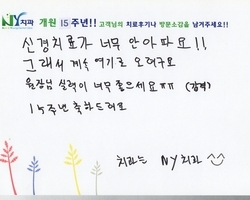 NY치과 개원 15주년!! 고객님의 치료후기나 방문소감을 남겨주세요!!
신경치료가 너무 안아파요!!
그래서 계속 여기로 오려구요
원장님 실력이 너무 좋으세요ㅠㅠ (감격)
15주년 축하드려요
치과는 NY치과 ^^